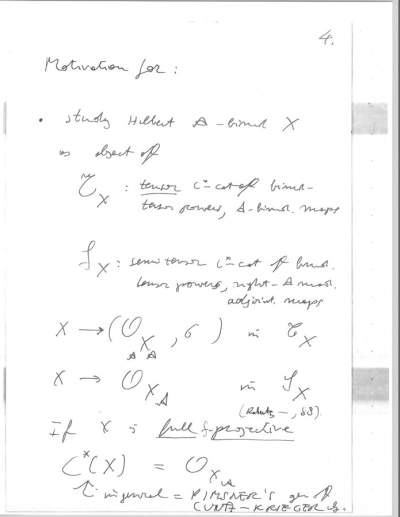 4.
Motivation for:
• study Hilbert A-bimod X
as object of
𝒯̃_X : tensor C*-cat of bimod-
tensor powers, A-bimod. maps
𝒮_X : semitensor C*-cat of bimod.
tensor powers, right-A mod.
adjoint. maps
X → (𝒪_{_A X_A}, σ) in 𝒯_X
X → 𝒪_{X_A} in 𝒮_X
(Roberts –, 88)
If X is full & projective
C*(X) = 𝒪_{X_A}
↑ in general = PIMSNER'S gen of
CUNTZ-KRIEGER alg.